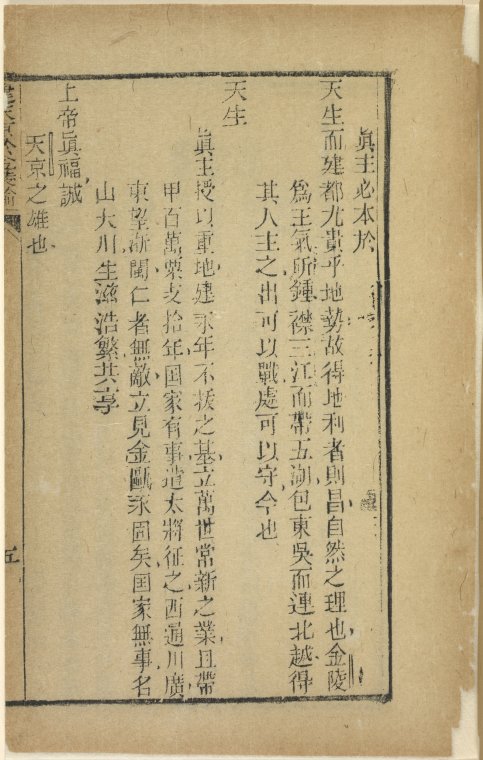 眞主必本於
天生而建都尤貴乎地勢故得地利者則昌自然之理也金陵
爲王氣所鍾襟三江而帶五湖包東吳而連北越得
其人主之出可以戰處可以守今也
天生
眞主授以重地建永年不拔之基立萬世常新之業且帶
甲百萬粟支拾年国家有事遣大將征之西通川廣
東望浙閩仁者無敵立見金甌永固矣国家無事名
山大川生滋浩繁共享
上帝眞福誠
天京之雄也
五